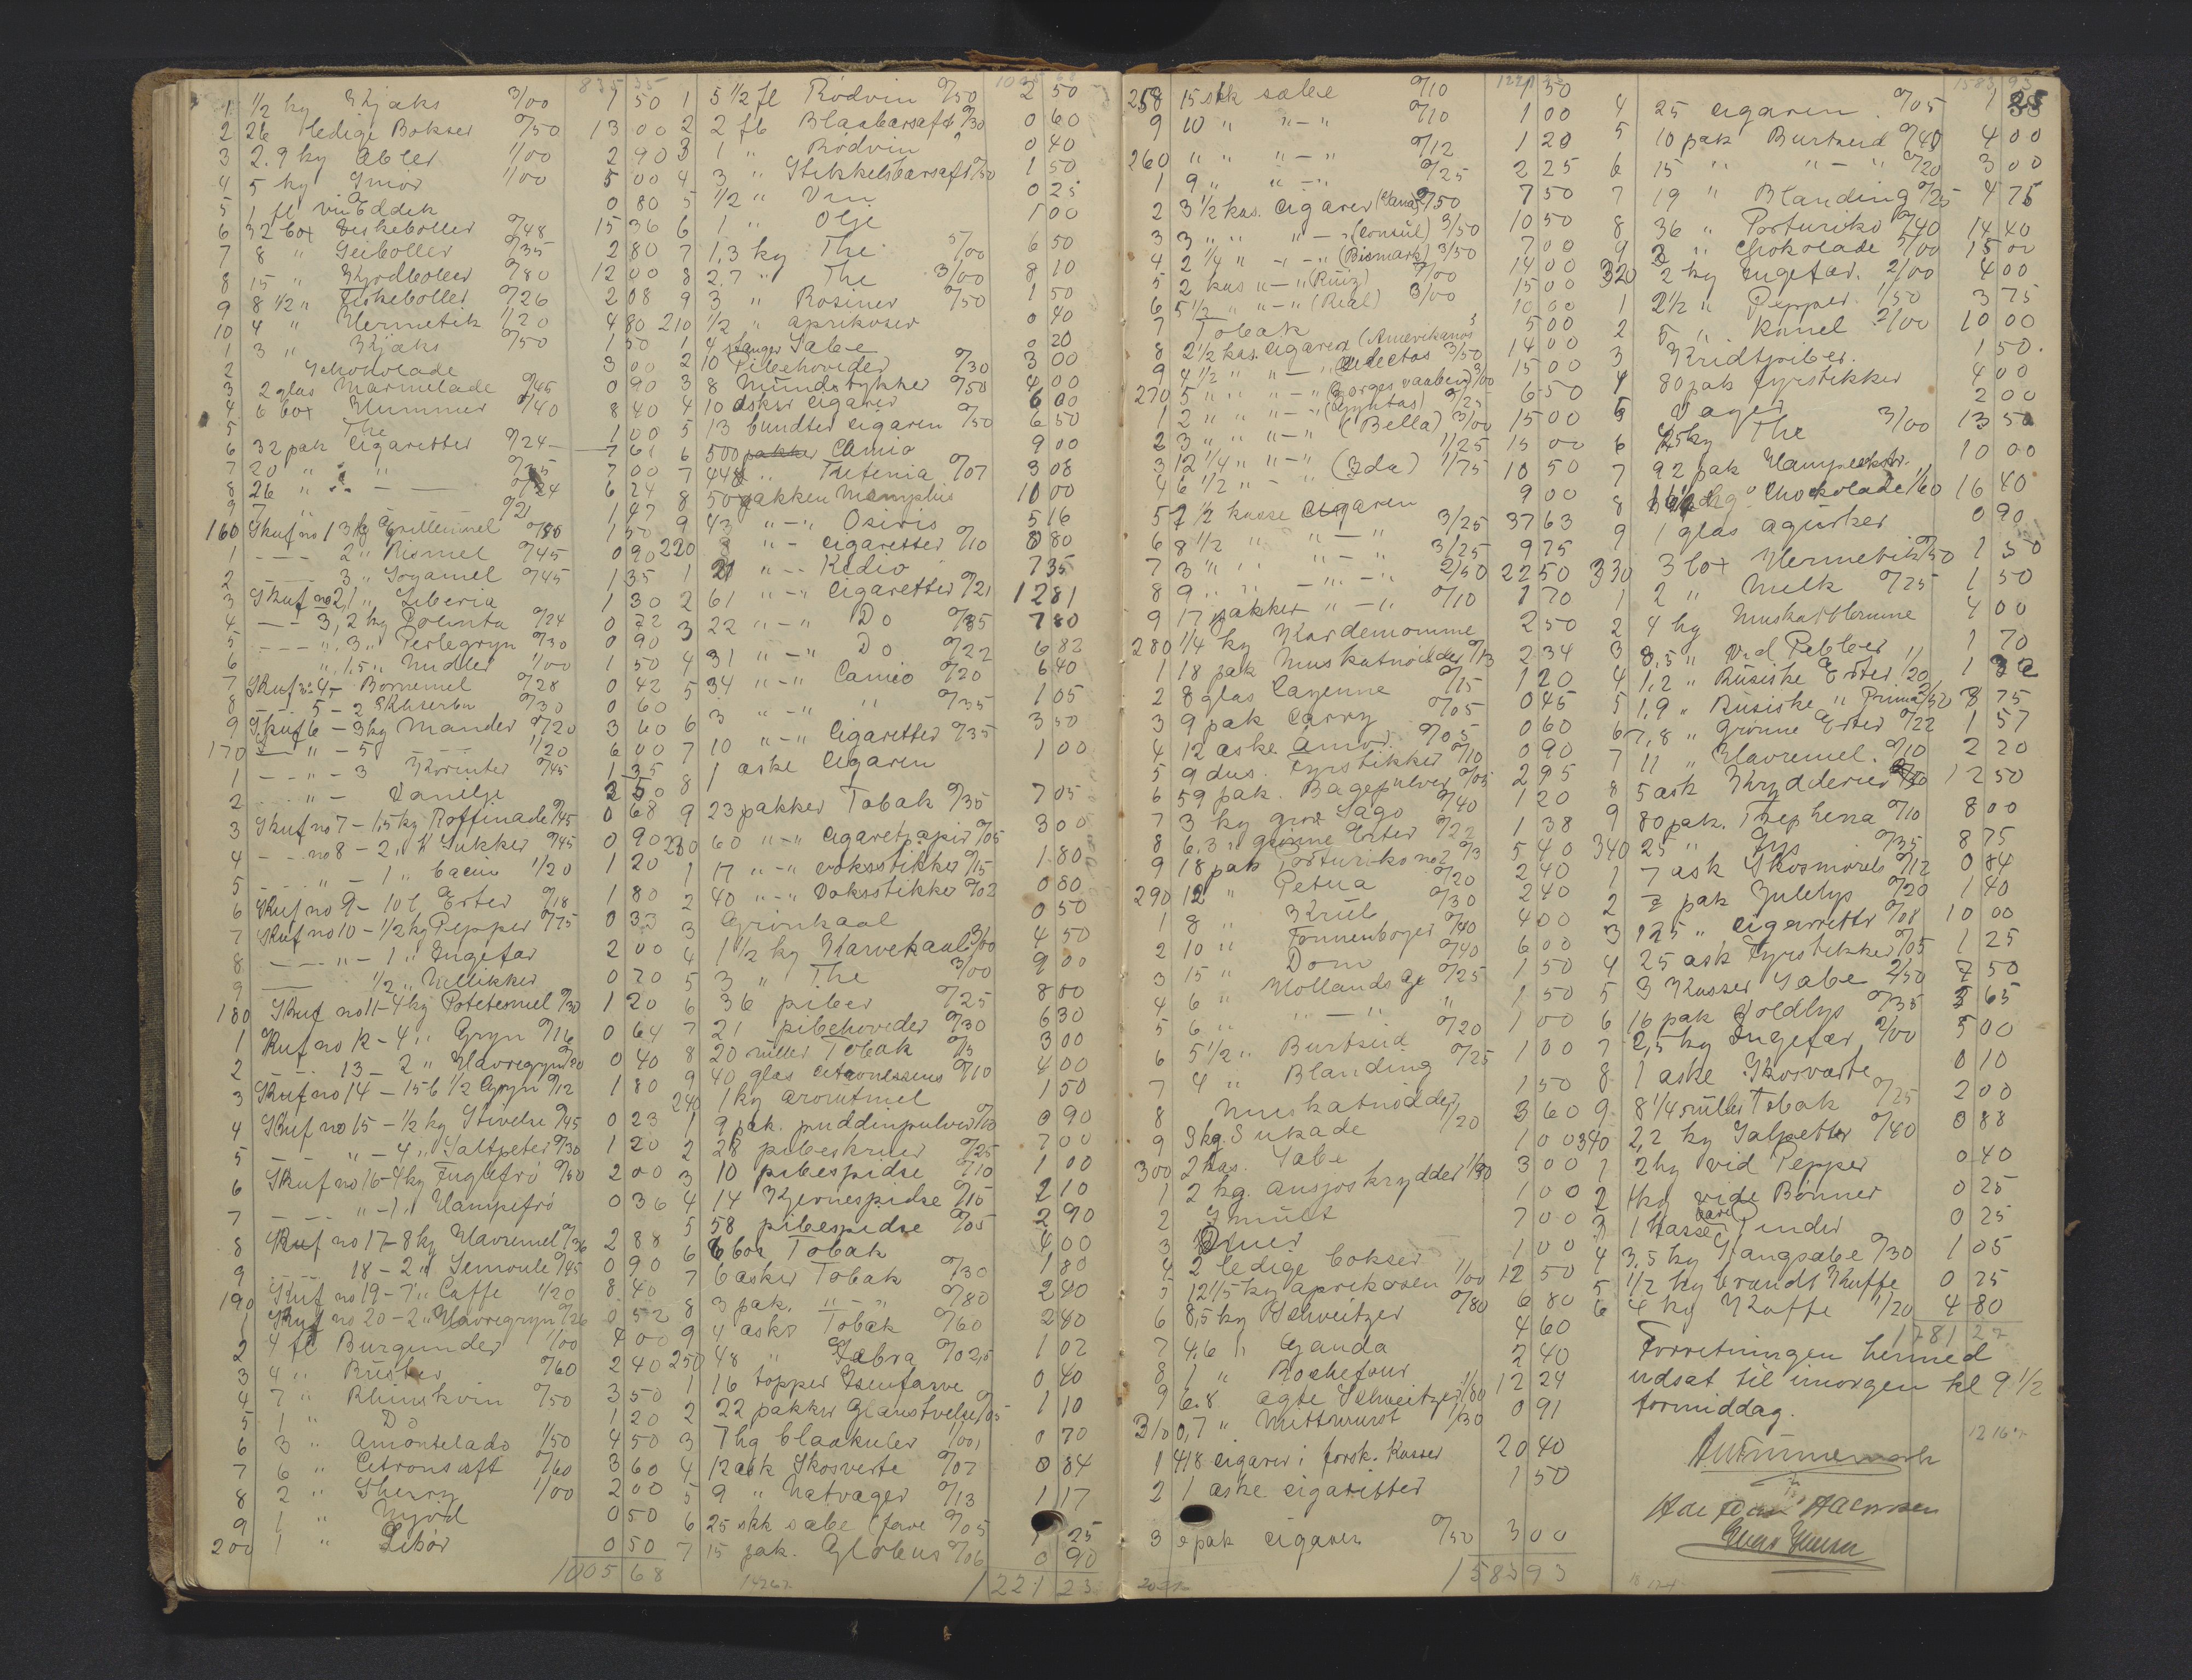 835 35
1 1/2 kg Kjæks 3/00 1 50
2 26 ledige Bokser 0/50 13 00
3 2.9 kg Æbler 1/00 2 90
4 5 kg Smør 1/00 5 00
5 1 fl vin Eddik 0 80
6 32 box Fiskeboller 0/48 15 36
7 8 " Seiboller 0/35 2 80
8 15 " Kjødboller 0/80 12 00
9 8 1/2 " Fiskeboller 0/26 2 08
10 4 " Hermetik 1/20 4 80
1 3 " Kjæks 0/50 1 50
2 Schokolade 3 00
3 2 glas Marmelade 0/45 0 90
4 6 box Hummer 1/40 8 40
5 The 1 00
6 32 pak Cigaretter 0/24 7 68
7 20 " " 0/35 7 00
8 26 " " 0/24 6 24
9 7 " 0/21 1 47
160 Skuf no 1 3 kg Grillemel 0/50 1 50
1 2 " Rismel 0/45 0 90
2 3 " Soyamel 0/45 1 35
3 Skuf no 2, 1 " Liberia 1 30
4 3, 2 kg Polenta 0/24 0 72
5 " 3 " Perlegryn 0/30 0 90
6 " 1,5 " Nudler 1/00 1 50
7 Skuf no 4 - Bornemel 0/28 0 42
8 5 - 2 0/30 0 60
9 Skuf 6 - 3 kg Mandler 1/20 3 60
170 " - 5 1/20 6 00
1 " - 3 Korinter 0/45 1 35
2 " - Vanilje 2 50
3 Skuf no 7 - 1,5 kg Raffinade 0/45 0 68
4 no 8 - 2 " H Sukker 0/45 0 90
5 " - 1 " Cacao 1/20 1 20
6 Skuf no 9 - 10 l Erter 0/18 1 80
7 Skuf no 10 - 1/2 kg Pepper 0/75 0 33
8 " - 1 " Ingefær 2 00
9 1/2 " Nellikker 0 70
180 Skuf no 11 - 4 kg Potetesmel 0/30 1 20
1 Skuf no 12 - 4 " Gryn 0/16 0 64
2 13 - 2 " Havregryn 0/20 0 40
3 Skuf no 14 - 15 l 1/2 Gryn 0/12 1 80
4 Skuf no 15 - 1/2 kg Stivelse 0/45 0 23
5 " - 4 " Saltpeter 0/30 1 20
6 Skuf no 16 - 4 kg Fuglefrø 0/50 2 00
7 " - 1 " Hampefrø 0 36
8 Skuf no 17 - 8 kg Havremel 0/36 2 88
9 18 - 2 " Semoule 0/45 0 90
190 Skuf no 19 - 7 " Caffe 1/20 8 40
1 Skuf no 20 - 2 " Havregryn 0/26 0 52
2 4 fl Burgunder 1/00 4 00
3 4 " Ruster 0/60 2 40
4 7 " Rhinskvin 0/50 3 50
5 1 " Do 1 20
6 3 " Amontelado 1/50 4 50
7 6 " Citronsaft 0/60 3 60
8 2 " Sherry 1/00 2 00
9 1 " Mjød 0 50
200 1 " Likør 0 50
1005 68
1005 68
1 5 1/2 fl Rødvin 0/50 2 50
2 2 fl Blaabærsaft 0/30 0 60
3 1 " Rødvin 0 40
4 3 " Stikkelsbærsaft 0/50 1 50
5 1/2 " Vin 0 25
6 1 " Olje 1 00
7 1.3 kg The 5/00 6 50
8 2.7 " The 3/00 8 10
9 3 " Rosiner 0/50 1 50
210 1/2 " aprikoser 0 40
1 4 stanger Sæbe 0 20
2 10 Pibehoveder 0/30 3 00
3 8 Mundstykker 0/50 4 00
4 10 æsker cigarer 6 00
5 13 bundter cigarer 0/50 6 50
6 500 pakker Camio 9 00
7 44 " Trefenia 0/07 3 08
8 50 pakker Memphis 10 00
9 43 " - " Osiris 5 16
220 8 " - cigaretter 0/10 0 80
1 21 " - Kedio 7 35
2 61 " - " cigaretter 0/21 12 81
3 22 " - " Do 0/35 7 80
4 31 " - " Do 0/22 6 82
5 34 " - " Cameo 0/20 6 40
6 3 " - " " 0/35 1 05
7 10 " - " Cigaretter 0/35 3 50
8 1 æske Cigaren 1 00
9 23 pakker Tobak 0/35 7 05
230 60 " - " Cigaretpapir 0/05 3 00
1 17 " - " voksstikker 0/15 1 80
2 40 " - " Voksstikke 0/02 0 80
3 Grønkaal 0 50
4 1 1/2 kg Karvekaal 3/00 4 50
5 3 " The 3/00 9 00
6 36 piber 0/25 8 00
7 21 pibehoveder 0/30 6 30
8 20 ruller Tobak 0/15 3 00
9 40 glas citronessens 0/10 4 00
240 1 kg arowtmel 1 50
1 9 pk. puddinpulver 0/10 0 90
2 28 pibeskruer 0/25 7 00
3 10 pibespidse 0/10 1 00
4 14 Kjernespidse 0/15 2 10
5 58 pibespidse 0/05 2 90
6 6 box Tobak 4 00
7 6 æsker Tobak 0/30 1 80
8 3 pak. " - " 0/80 2 40
9 4 æsker Tobak 0/60 2 40
250 48 " Zebra 0/02,5 1 02
1 16 topper Isenfarve 0 40
2 22 pakker Glanstivelse 0/05 1 10
3 7 hg blaakuler 1/00 0 70
4 12 æsk Skosverte 0/07 0 84
5 9 " Natvæger 0/13 1 17
6 25 stk sæbe (fare 0/05 1 25
7 15 pak. Globus 0/06 0 90
1221 23
1221 23
258 15 stk sæbe 0/10 1 50
9 10 " " - " 0/10 1 00
260 " " " - " 0/12 1 20
1 9 " " - " 0/25 2 25
2 3 1/2 kas. Cigarer 2/50 7 50
3 3 " " " - " (Consul) 3/50 10 50
4 2 1/4 " - " - " (Bismark) 3/50 7 00
5 2 kas " - " (Ruiz) 7/00 14 00
6 5 1/2 " " - " (Real) 3/00 15 00
7 Tobak 10 00
8 2 1/2 kas. Cigarer (Amerikanos 5 00
9 4 1/2 " " - " Selectos 3/50 14 00
270 5 " " " - " (Norges vaaben) 3/00 15 00
1 2 " " " - " 6 50
2 3 " " " - " (Bella) 3/00 15 00
3 12 1/4 " " - " 1/25 15 00
4 6 1/2 " - " (Ida) 1/75 10 50
5 7 1/2 kasse cigaren 9 00
6 8 1/2 " " - " 3/25 37 63
7 3 " " " - " 3/25 9 75
8 9 " " - " - " 2/50 22 50
9 17 pakker " - " 0/10 1 70
280 1/4 kg Kardemomme 2 50
1 18 pak Muskatnødder 0/13 2 34
2 8 glas Cayenne 0/15 1 20
3 9 pak Carry 0/05 0 45
4 12 æske Amor 0/05 0 60
5 9 dus. Fyrstikker 0/10 0 90
6 59 pak. Bagepulver 0/05 2 95
7 3 kg grov Sago 0/40 1 20
8 6.3 " grønne Erter 0/22 1 38
9 18 pak Porturiko no 2 0/3 5 40
290 12 " Petua 0/20 2 40
1 8 " Krüll 0/30 2 40
2 10 " Tønnenborger 0/40 4 00
3 15 " Dom 0/40 6 00
4 6 " Hollandsge 0/25 1 50
5 6 " " - " " 1 50
6 5 1/2 " Burtseid 0/20 1 00
7 4 " Blanding 0/25 1 00
8 Muskatnødder 1 50
9 3 kg. Sukade 1/20 3 60
300 2 kas. Sæbe 1 00
1 2 kg. ansjoskrydder 1/50 3 00
2 Smult 1 00
3 Druer 7 00
4 2 ledige bokser 1 00
5 12 1/5 kg aprikosen 1/00 12 50
6 8,5 kg Schweitzer 0/80 6 80
7 4,6 " Gouda 4 60
8 1 " Rochefour 2 40
9 6.8 ægte Schweitzer 1/80 12 24
310 0,7 " Mittwurst 1/30 0 91
1 418 cigarer i forsk. Kasser 20 40
2 1 æske cigaritter 1 50
3 pak cigarer 0/50 3 00
1583 93
1583 93
4 25 cigaren 0/05 1 25
5 10 pak Burtseid 0/40 4 00
6 15 " " - " 0/20 3 00
7 19 " Blanding 0/25 4 75
8 36 " Porturiko 0/40 14 40
9 3 " Chokolade 5/00 15 00
320 2 kg Ingefær. 2/00 4 00
1 2 1/2 " Pepper 1/50 3 75
2 5 " Kanel 2/00 10 00
3 Kridtpiber. 1 50
4 80 pak fyrstikker 4 00
5 Væger 2 00
6 4,5 kg The 3/00 13 50
7 92 pak Hampeekstr. 10 00
8 " Chockolade 1/60 16 40
9 1 glas agurker 0 90
330 3 box Hermetik 0/50 1 50
1 2 " Melk 0/25 1 50
2 4 hg Muskatblomme 4 00
3 8,5 " Vid Pebber 1 70
4 1,2 " Rusiske Erter 1/20 1 32
5 1,9 " Rusiske " Prima 8 75
6 7,8 " Grønne Erter 0/22 1 57
7 11 " Havremel. 0/10 2 20
8 5 æsk Krydderier 12 50
9 80 pak. Trephena 0/10 8 00
340 25 " Lys 0/35 8 75
1 7 æsk Skosmørels 0/12 0 84
2 7 pak Julelys 0/20 1 40
3 125 " Cigarretter 0/08 10 00
4 25 æsk Fyrstikker 0/05 1 25
5 3 Kasser Sæbe 2/50 7 50
6 16 pak Goldlys 0/35 3 65
7 2,5 kg Ingefær 2/00 5 00
8 1 æske Skosværte 0 10
9 8 1/4 ruller Tobak 0/25 2 00
340 2,2 kg Salpetter 0/40 0 88
1 2 hg vid Pepper 0 40
2 1 kg vide Bønner 0 25
3 1 Kasse Tinder 0 25
4 3.5 kg Stangsæbe 0/30 1 05
5 1/2 kg brændt Kaffe 0 25
6 4 kg Kaffe 1/20 4 80
1781 27
Forretningen hermed
udsat til imorgen kl 9 1/2
formiddag.